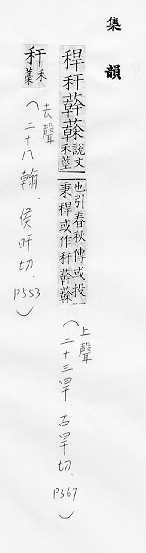 集韻
稈秆
說文
禾莖
也引春秋傳或投
秉稈或作秆
(上聲
二十三旱 古旱切. P367)
秆
禾
藁
(去聲
二十八翰. 侯旰切. P553)